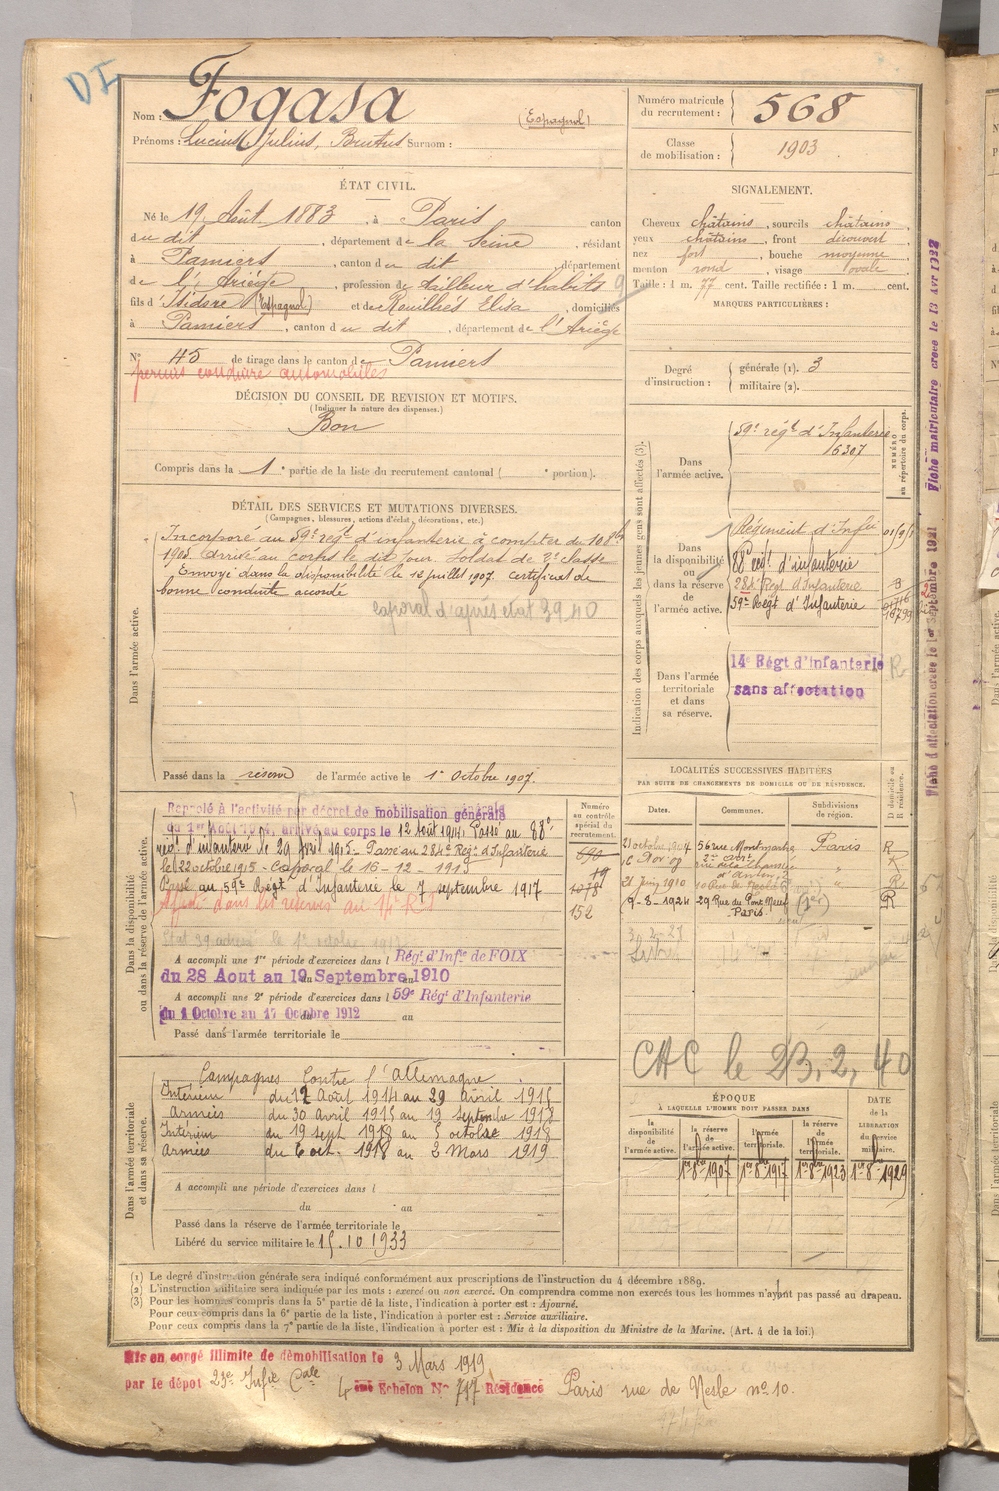 DI
Nom : Fogasa (Espagnol)
Prénoms : Lucius, Julius, Brutus Surnom :
Numéro matricule du recrutement : 568
Classe de mobilisation : 1903
ÉTAT CIVIL.
Né le 19 Août 1883, à Paris canton
du dit, département de la Seine, résidant
à Pamiers, canton du dit département
de l'Ariège, profession de tailleur d'habits
fils d'Isidore (Espagnol) et de Rouilhès Elisa, domiciliés
à Pamiers, canton du dit, département de l'Ariège
N° 45 de tirage dans le canton de Pamiers
permis conduire automobiles
SIGNALEMENT.
Cheveux châtains, sourcils châtains
yeux châtains, front découvert
nez fort, bouche moyenne
menton rond, visage ovale
Taille : 1 m. 77 cent. Taille rectifiée : 1 m. cent.
MARQUES PARTICULIÈRES :
Degré d'instruction : générale (1). 3
militaire (2).
DÉCISION DU CONSEIL DE REVISION ET MOTIFS.
(Indiquer la nature des dispenses.)
Bon
Compris dans la 1e partie de la liste du recrutement cantonal ( e portion).
DÉTAIL DES SERVICES ET MUTATIONS DIVERSES.
(Campagnes, blessures, actions d'éclat, décorations, etc.)
Dans l'armée active.
Incorporé au 59e régt d'infanterie à compter du 10 8bre
1905. Arrivé au corps le dit jour, soldat de 2e classe
Envoyé dans la disponibilité le 12 juillet 1907. Certificat de
bonne conduite accordé
caporal d'après état 39.40
Passé dans la réserve de l'armée active le 1er Octobre 1907.
Indication des corps auxquels les jeunes gens sont affectés (3).
NUMÉRO au répertoire du corps.
Dans l'armée active.
59e régt d'Infanterie
6307
Dans la disponibilité ou dans la réserve de l'armée active.
Régiment d'Infie
88e régt d'infanterie
284e Régt d'Infanterie
59e Régt d'Infanterie
Dans l'armée territoriale et dans sa réserve.
14e Régt d'Infanterie
sans affectation
R
Fiche matriculaire créée le 13 Avr 1932
Fiche d'affectation créée le 1er Septembre 1921
Dans la disponibilité ou dans la réserve de l'armée active.
Rappelé à l'activité par décret de mobilisation générale
du 1er Août 1914, arrivé au corps le 12 Août 1914. Passé au 88e
régt d'infanterie le 29 Avril 1915 - Passé au 284e Régt d'Infanterie
le 22 octobre 1915 - Caporal le 16-12-1915
Passé au 59e Régt d'Infanterie le 7 septembre 1917
Affecté dans les réserves au 14e R I
A accompli une 1re période d'exercices dans l Régt d'Infie de FOIX
du 28 Aout au 19 Septembre 1910
A accompli une 2e période d'exercices dans l 59e Régt d'Infanterie
du 1 Octobre au 17 Octobre 1912 au
Passé dans l'armée territoriale le
Numéro au contrôle spécial du recrutement.
690
19
1078
152
LOCALITÉS SUCCESSIVES HABITÉES
PAR SUITE DE CHANGEMENTS DE DOMICILE OU DE RÉSIDENCE.
Dates. Communes. Subdivisions de région. D domicile ou R résidence.
21 octobre 1904 56 rue Montmartre Paris R
2e arrt
16 Nov 09 rue de la Chaussée d'Antin " R
21 Juin 1910 10 Rue de Nesle " R
9-8-1924 29 Rue du Pont Neuf (1er) R
Paris
CAC le 23.2.40
Dans l'armée territoriale et dans sa réserve.
Campagnes Contre l'Allemagne
Intérieur du 12 Août 1914 au 29 avril 1915
Armées du 30 Avril 1915 au 19 Septembre 1918
Intérieur du 19 sept 1918 au 5 octobre 1918
Armées du 6 oct. 1918 au 2 Mars 1919
A accompli une période d'exercices dans l
du au
Passé dans la réserve de l'armée territoriale le
Libéré du service militaire le 15.10 1933
ÉPOQUE
À LAQUELLE L'HOMME DOIT PASSER DANS
la disponibilité de l'armée active.
la réserve de l'armée active.
l'armée territoriale.
la réserve de l'armée territoriale.
DATE de la LIBÉRATION du service militaire.
1er 8bre 1907 1er 8bre 1917 1er 8bre 1923 1er 8bre 1929
(1) Le degré d'instruction générale sera indiqué conformément aux prescriptions de l'instruction du 4 décembre 1889.
(2) L'instruction militaire sera indiquée par les mots : exercé ou non exercé. On comprendra comme non exercés tous les hommes n'ayant pas passé au drapeau.
(3) Pour les hommes compris dans la 5e partie de la liste, l'indication à porter est : Ajourné.
Pour ceux compris dans la 6e partie de la liste, l'indication à porter est : Service auxiliaire.
Pour ceux compris dans la 7e partie de la liste, l'indication à porter est : Mis à la disposition du Ministre de la Marine. (Art. 4 de la loi.)
Mis en congé illimité de démobilisation le 3 Mars 1919
par le dépôt 23e Infie Cale 4 ème Echelon N° 717 Résidence Paris rue de Nesle n° 10.